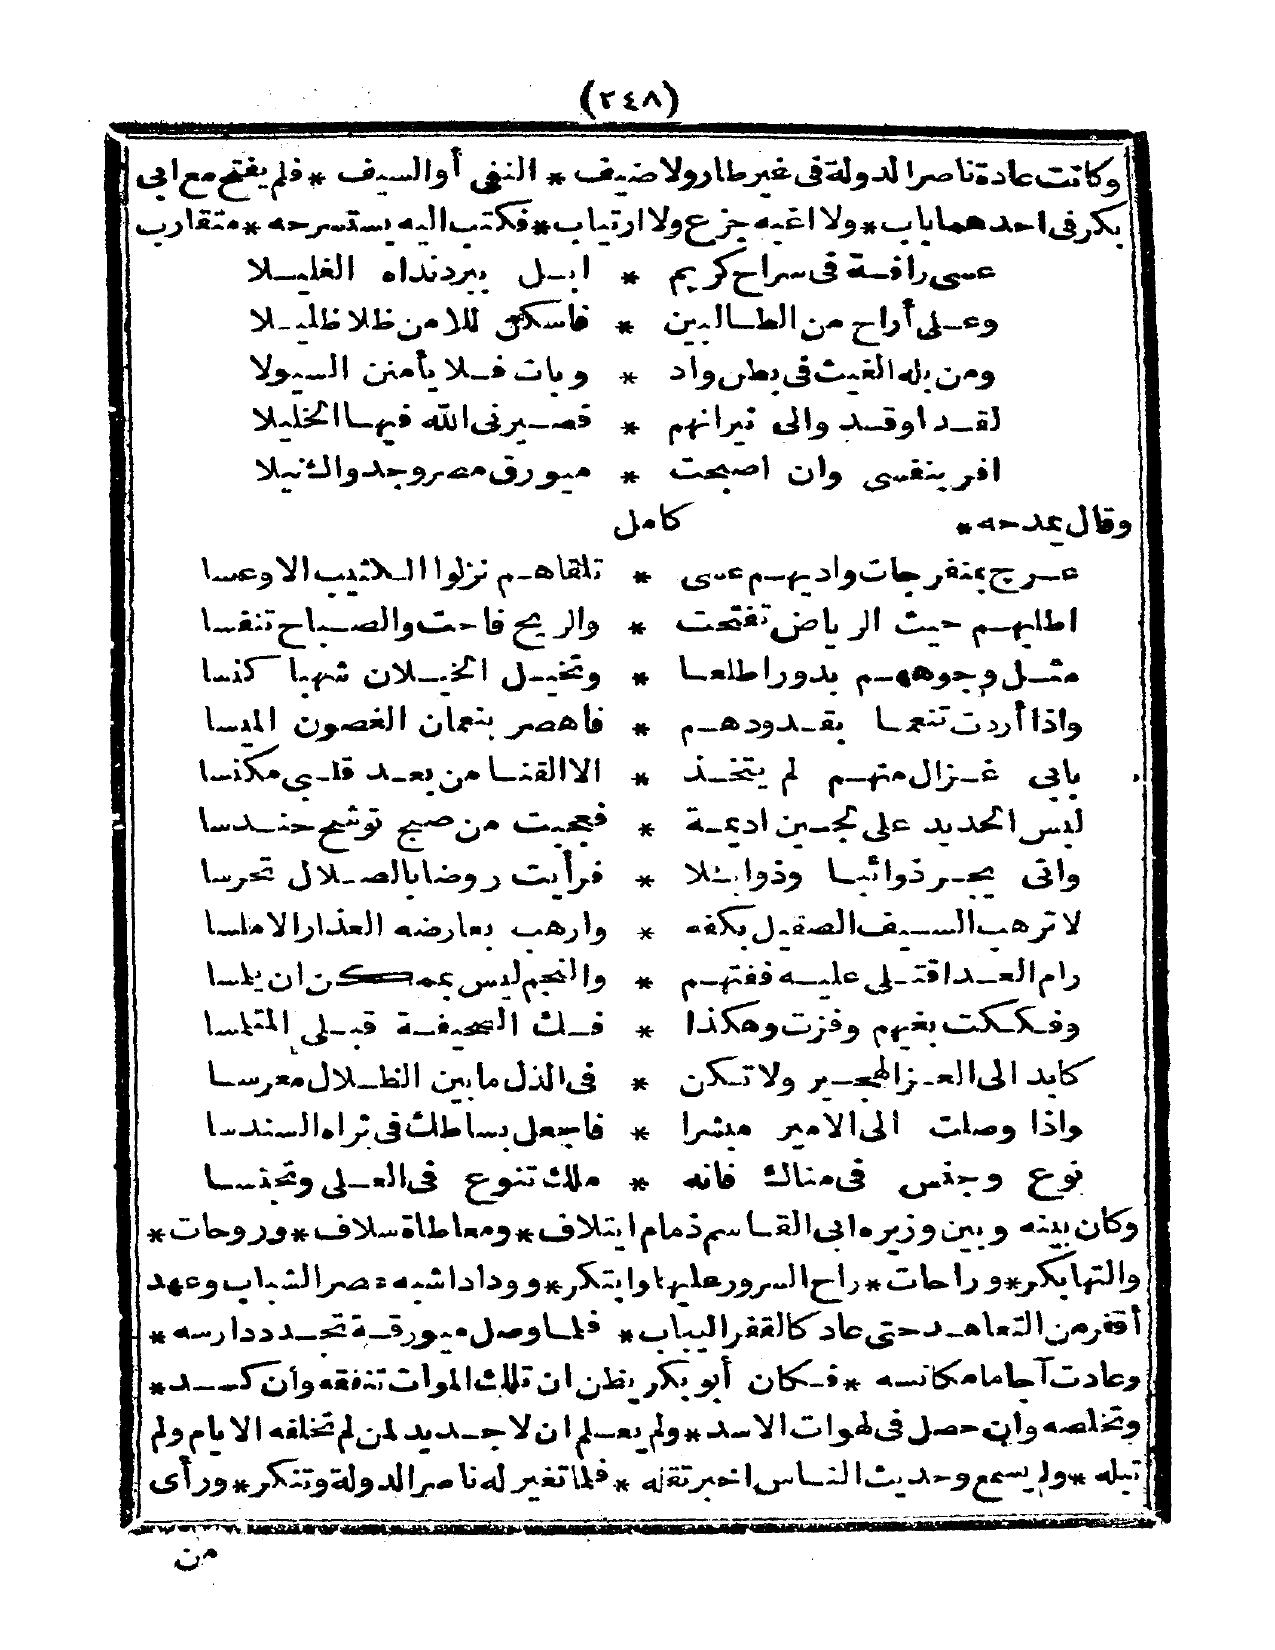 (٢٤٨)
وكانت عادة ناصر الدولة فى غير طار ولا ضيف * النفى أو السيف * فلم يفتح مع ابى
بكر فى احدهما باب * ولا اغبه جزع ولا ارتياب * فكتب اليه يستسرحه * متقارب
عسى رافة فى سراح كريم * ابل ببرد نداه الغليلا
وعلى أراح من الطالبين * فاسكن للامن ظلا ظليلا
ومن بله الغيث فى بطن واد * وبات فلا يأمنن السيولا
لقد اوقدوا لى نيرانهم * فصيرنى الله فيها الخليلا
افر بنفسى وان اصبحت * ميورق مصر وجدوا لـ نيلا
وقال بمدحه * كامل
عرج بمنعرجات واديهم عسى * تلقاهم نزلوا الكثيب الاوعسا
اطلبهم حيث الرياض تفتحت * والريح فاحت والصباح تنفسا
مثل وجوههم بدورا طلعا * وتخيل الخيلان شهبا كنسا
واذا أردت تنعما بقدودهم * فاهصر بنعمان الغصون الميسا
بابى غزال منهم لم يتخذ * الا القنا من بعد قلبى مكنسا
لبس الحديد على لجين اديمه * فعجبت من صبح توشح حندسا
واتى يجر ذوائبا وذوابلا * فرأيت روضا بالصلال تحرسا
لا ترهب السيف الصقيل بكفه * وارهب بعارضه العذار الاملسا
رام العدا قتلى عليه ففتهم * والنجم ليس بممكن ان يلمسا
وفككت بغيهم وفزت وهكذا * فك الصحيفة قبلى المتلمسا
كابد الى العز الهجير ولا تكن * فى الذل ما بين الظلال معرسا
واذا وصلت الى الامير مبشرا * فاجعل بساطك فى تراه السندسا
نوع وجنس فى مناك فانه * ملك تنوع فى العلى وتجنسا
وكان بينه وبين وزيره ابى القاسم ذمام ايتلاف * ومعاطاة سلاف * وروحات *
والتها بكر * وراحات * راح السرور عليها وابتكر * وودادا شبه عصر الشباب وعهد
أقفر من التعاهد حتى عاد كالقفر اليباب * فلما وصل ميورقة تجدد دارسه *
وعادت آجاما مكانسه * فكان أبو بكر يظن ان تلك الموات تنفقه وان كسد *
وتخلصه وان حصل فى لهوات الاسد * ولم يعلم ان لا جديد لمن لم تخلقه الايام ولم
تبله * ولم يسمع وحديث الناس اخبر تقله * فلما تغير له ناصر الدولة وتنكر * ورأى
من